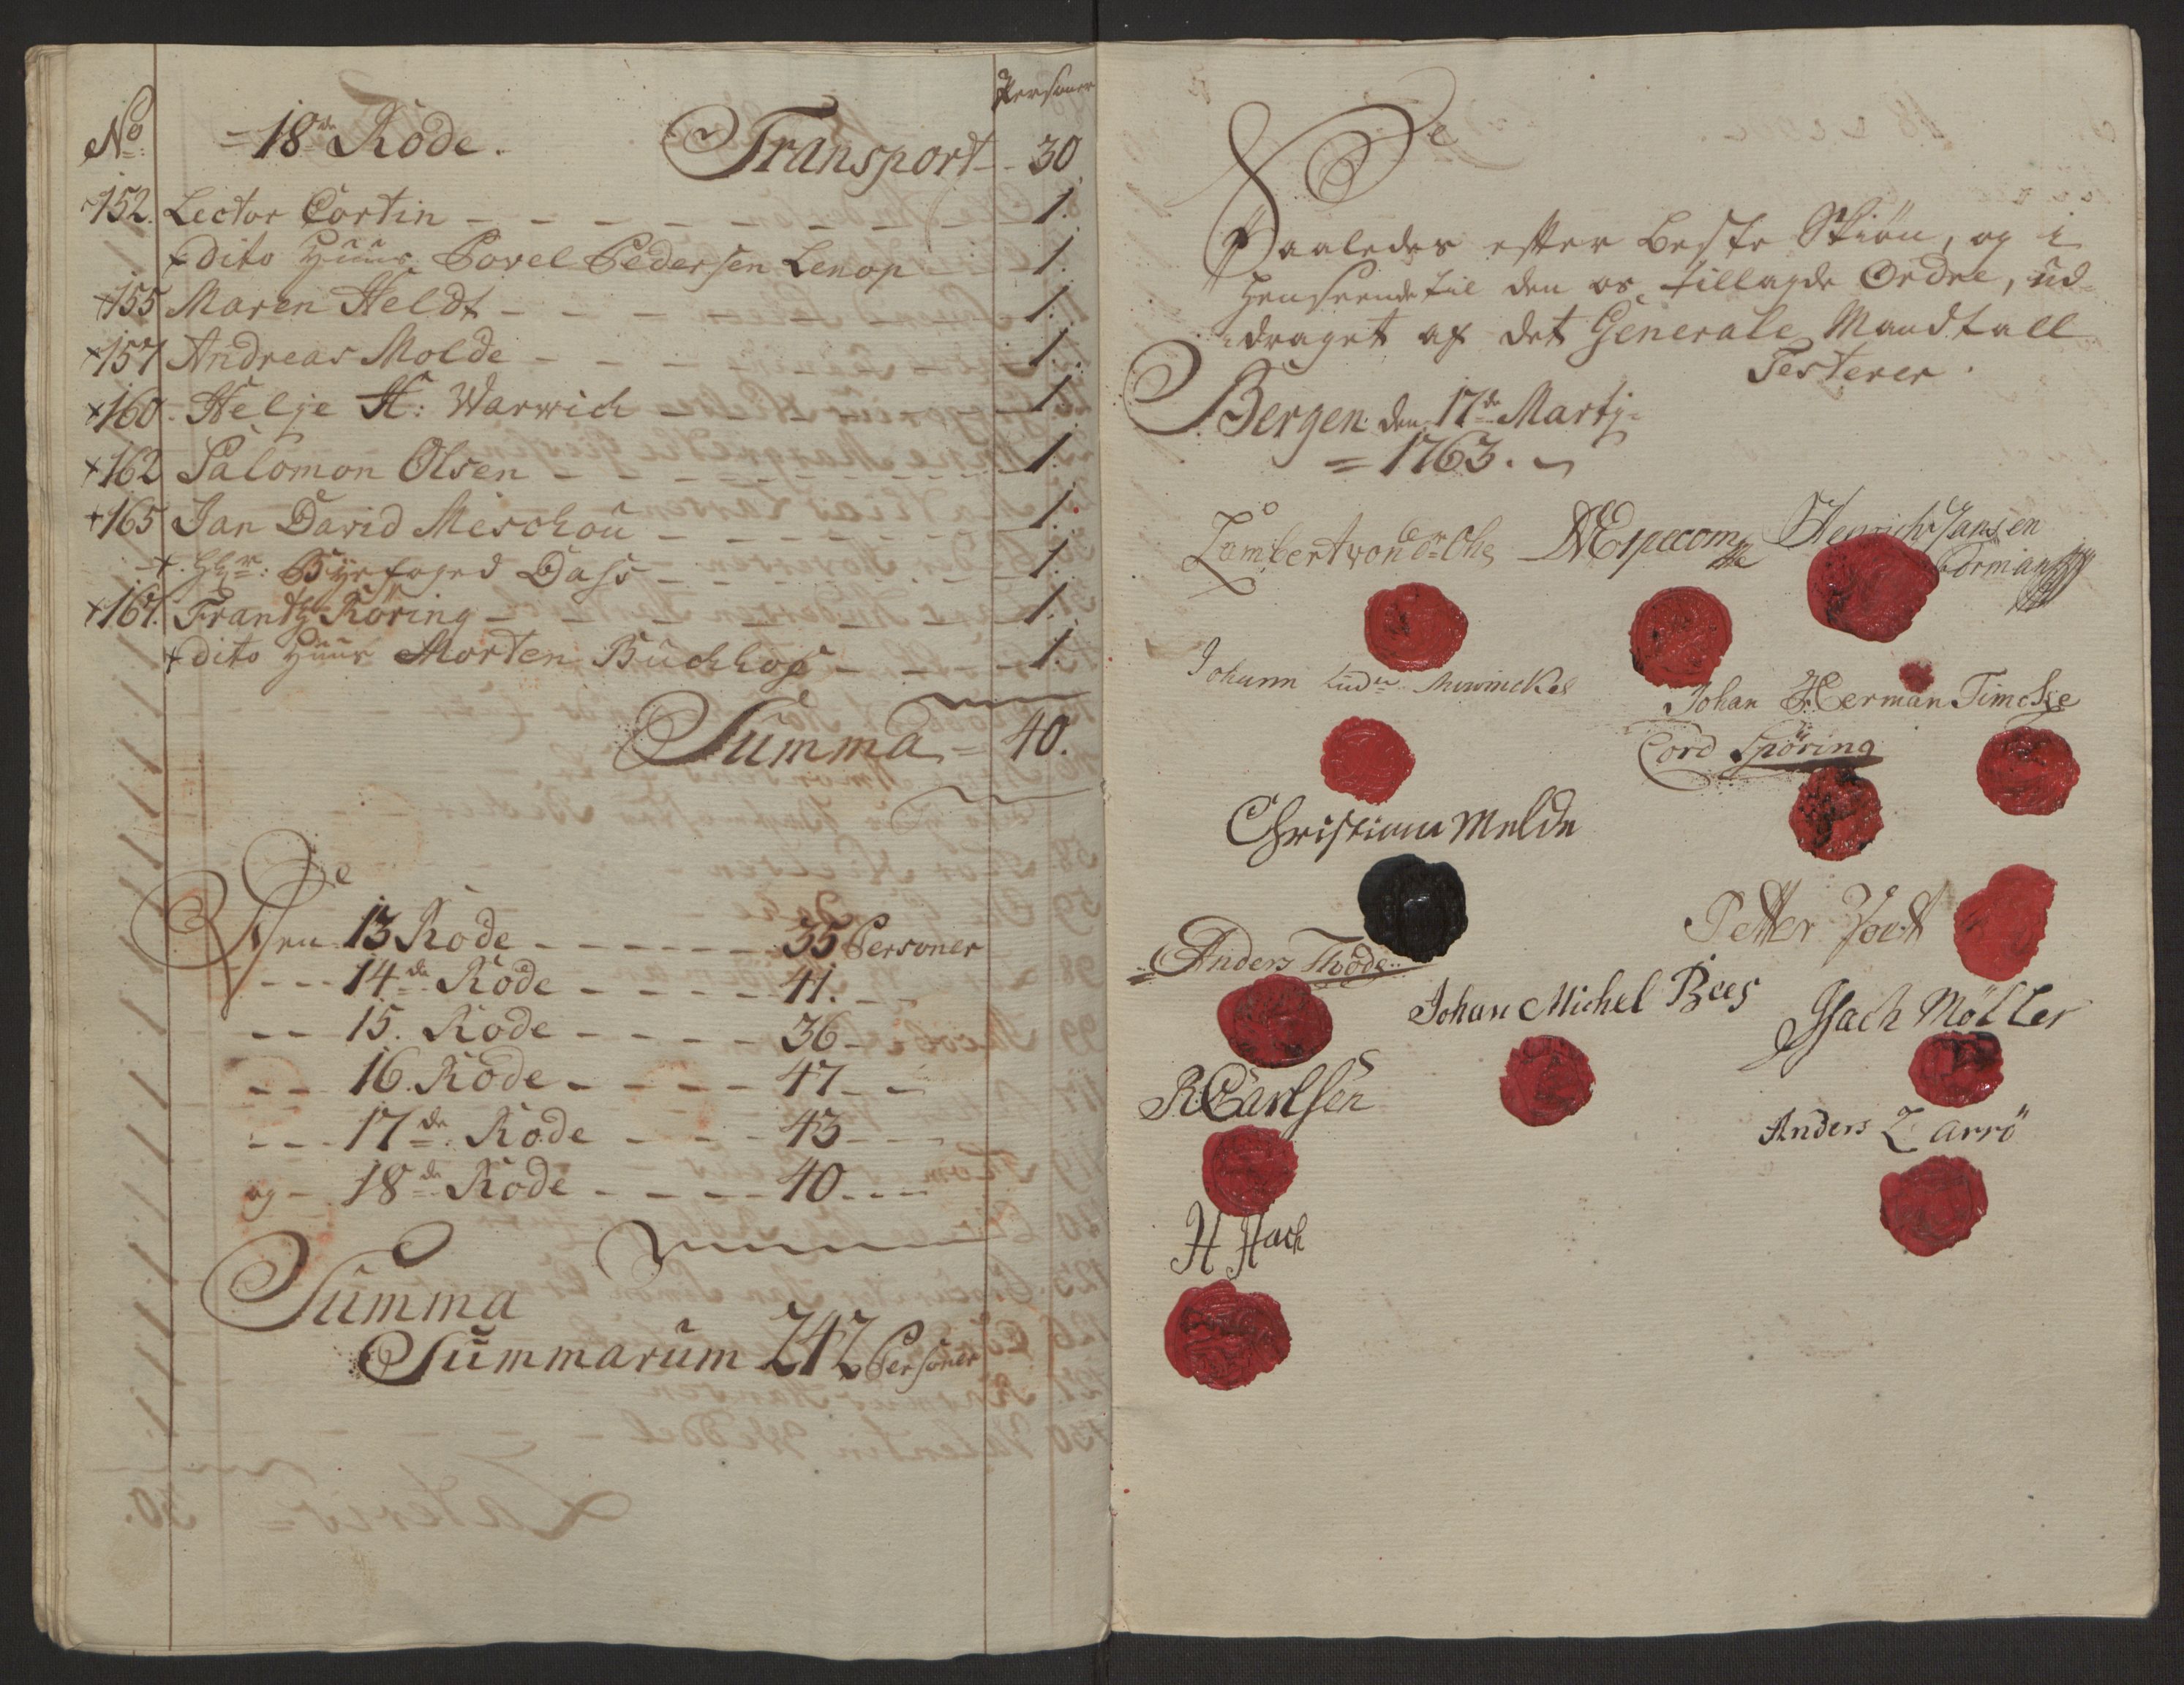 Personer
No. 18de Rode. Transport 30
152. Lector Cortin 1.
+ Dito Huus Povel Pedersen Lenop 1.
+155 Maren Heldt 1.
+157 Andreas Molde 1.
+160. Helje H: Warwich 1.
+162 Salomon Olsen 1.
+165 Jan David Meschou 1.
+ Hr: Byefoged Dass 1.
+167. Frantz Röring 1.
+ dito Huus Morten Buchhop 1.
Summa = 40.
Den 13 Rode 35 Personer
14de Rode 41.
15. Rode 36
16. Rode 47
17de Rode 43
og 18de Rode 40
Summa
Summarum 242 Personer
Saaledes efter beste Skiøn, og i
henseende til den os tillagde Ordre, ud-
draget af det Generale Mandtall
Testerer.
Bergen den 17de Martj
= 1763.
Lambert von der Ohe Henrich Jansen
Formann
Johann Ludr Mowinckel
Johan Herman Timcke
Cord Spöring
Christian Melde
Petter Vogt
Anders Thode
Johan Michel Bees
Isach Möller
R Carlsen
Anders Zarrö
H Hach